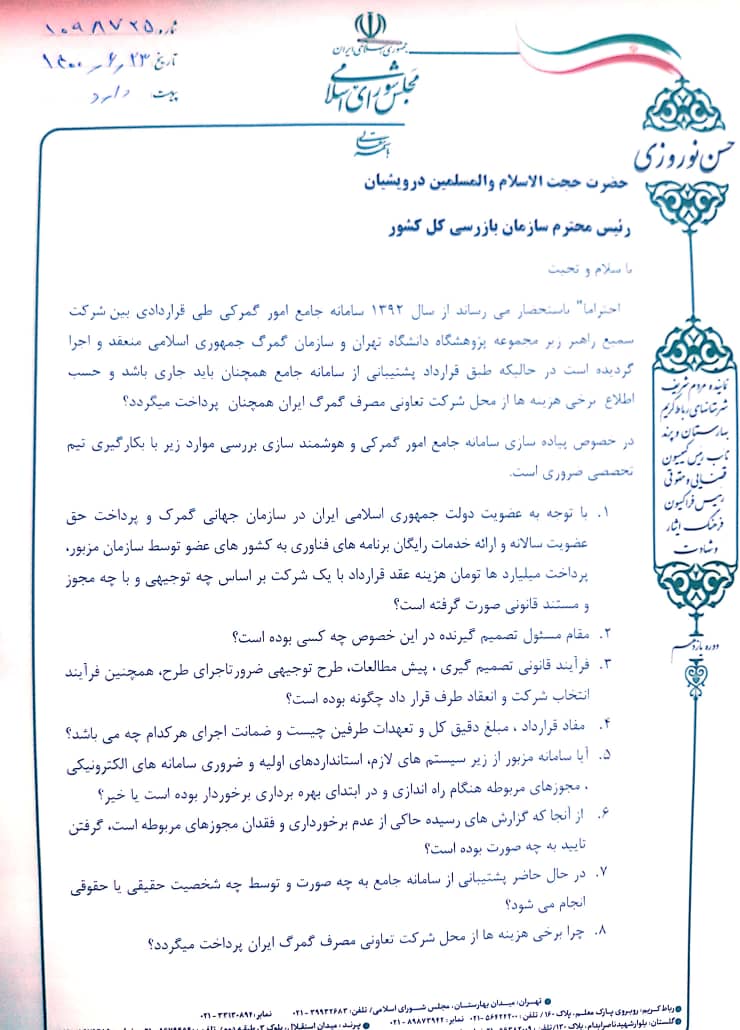 شماره: ۱۰۹۸۷۲۵
تاریخ ۱۴۰۰٫۶٫۲۳
پیوست: دارد
جمهوری اسلامی ایران
مجلس شورای اسلامی
بسمه تعالی
حسن نوروزی
حضرت حجت الاسلام والمسلمین درویشیان
رئیس محترم سازمان بازرسی کل کشور
با سلام و تحیت
احتراما" باستحضار می رساند از سال ۱۳۹۲ سامانه جامع امور گمرکی طی قراردادی بین شرکت
سمیع راهبر زیر مجموعه پژوهشگاه دانشگاه تهران و سازمان گمرگ جمهوری اسلامی منعقد و اجرا
گردیده است در حالیکه طبق قرارداد پشتیبانی از سامانه جامع همچنان باید جاری باشد و حسب
اطلاع برخی هزینه ها از محل شرکت تعاونی مصرف گمرگ ایران همچنان پرداخت میگردد؟
در خصوص پیاده سازی سامانه جامع امور گمرکی و هوشمند سازی بررسی موارد زیر با بکارگیری تیم
تخصصی ضروری است.
۱. با توجه به عضویت دولت جمهوری اسلامی ایران در سازمان جهانی گمرک و پرداخت حق
عضویت سالانه و ارائه خدمات رایگان برنامه های فناوری به کشور های عضو توسط سازمان مزبور،
پرداخت میلیارد ها تومان هزینه عقد قرارداد با یک شرکت بر اساس چه توجیهی و با چه مجوز
و مستند قانونی صورت گرفته است؟
۲. مقام مسئول تصمیم گیرنده در این خصوص چه کسی بوده است؟
۳. فرآیند قانونی تصمیم گیری ، پیش مطالعات، طرح توجیهی ضرورتاجرای طرح، همچنین فرآیند
انتخاب شرکت و انعقاد طرف قرار داد چگونه بوده است؟
۴. مفاد قرارداد ، مبلغ دقیق کل و تعهدات طرفین چیست و ضمانت اجرای هرکدام چه می باشد؟
۵. آیا سامانه مزبور از زیر سیستم های لازم، استانداردهای اولیه و ضروری سامانه های الکترونیکی
، مجوزهای مربوطه هنگام راه اندازی و در ابتدای بهره برداری برخوردار بوده است یا خیر؟
۶. از آنجا که گزارش های رسیده حاکی از عدم برخورداری و فقدان مجوزهای مربوطه است، گرفتن
تایید به چه صورت بوده است؟
۷. در حال حاضر پشتیبانی از سامانه جامع به چه صورت و توسط چه شخصیت حقیقی یا حقوقی
انجام می شود؟
۸. چرا برخی هزینه ها از محل شرکت تعاونی مصرف گمرگ ایران پرداخت میگردد؟
نماینده مردم شریف
شهرستانهای رباط کریم
بهارستان و پرند
نایب رییس کمیسیون
قضایی و حقوقی
رییس فراکسیون
فرهنگ ایثار
و شهادت
دوره یازدهم
تهران، میدان بهارستان، مجلس شورای اسلامی/ تلفن: ۳۹۹۳۲۶۸۳-۰۲۱ نمابر: ۳۳۱۳۰۸۹۴-۰۲۱
رباط کریم، روبروی پارک معلم، پلاک ۱۶۰/ تلفن: ۵۶۴۲۲۲۰۰-۰۲۱ نمابر: ۸۹۸۷۳۹۴۲-۰۲۱